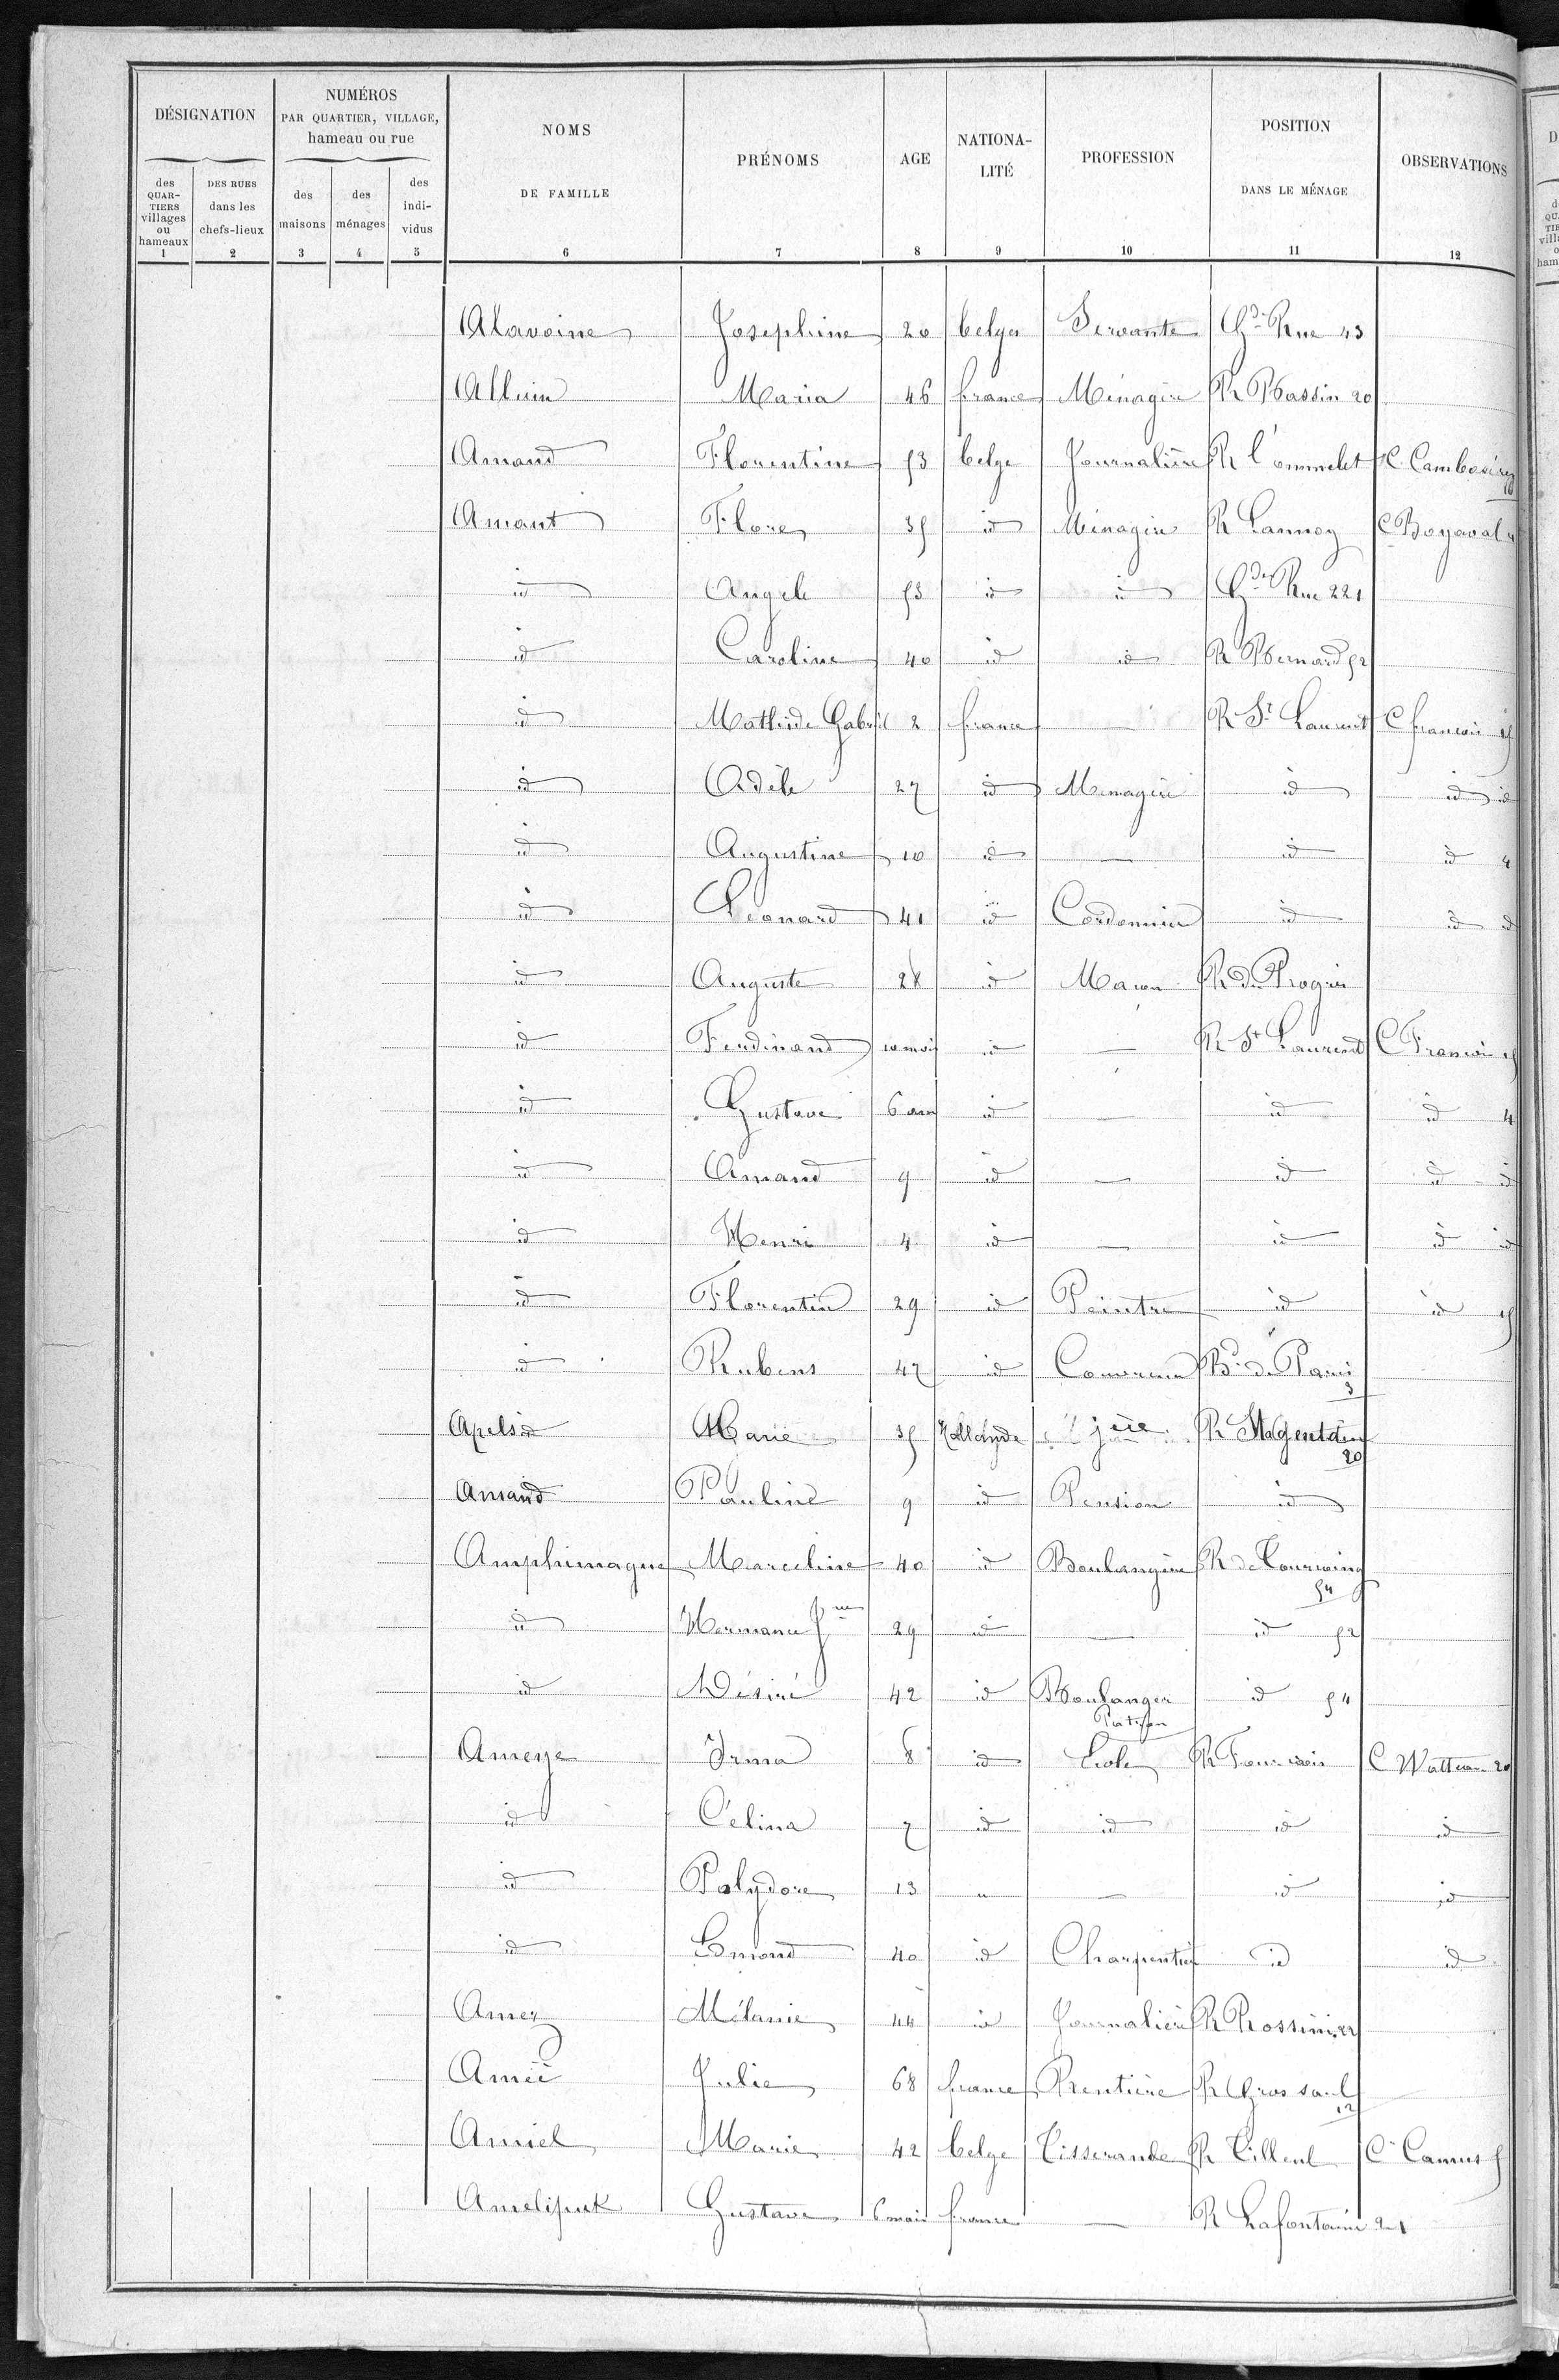 DÉSIGNATION NUMÉROS PAR QUARTIER, VILLAGE, hameau ou rue NOMS DE FAMILLE PRÉNOMS AGE NATIONA-LITÉ PROFESSION POSITION DANS LE MÉNAGE OBSERVATIONS
des QUAR-TIERS villages ou hameaux DES RUES dans les chefs-lieux des maisons des ménages des indi-vidus
1 2 3 4 5 6 7 8 9 10 11 12
Alavoine Josephine 20 belge Servante Gde Rue 43
Alluin Maria 46 france Ménagère R Bassin 20
Amand Florentine 53 belge Journalière R l'ommelet C Cambacérès
Amant Flore 35 id Ménagère R Lannoy C Boyaval 4
id Angèle 53 id id Gde Rue 221
id Caroline 40 id id R Bernard 52
id Mathilde Gabriel 2 france — R St Laurent C francois 15
id Adèle 27 id Menagère id id id
id Augustine 10 id — id id 4
id Léonard 41 id Cordonnier id id id
id Auguste 28 id Macon R du Progrès
id Ferdinand 10 mois id — R St Laurent C Francois 15
id Gustave 6 ans id — id id 4
id Amand 9 id — id id id
id Henri 4 id — id id id
id Florentin 29 id Peintre id id 15
id Rubens 47 id Couvreur Bd de Paris 3
Apels Marie 35 Hollande jère R 20
Amand Pauline 9 id Pension id
Amphimaque Marceline 40 id Boulangère R de Tourcoing 54
id Hermance Jne 29 id — id 52
id Désiré 42 id Boulanger Patron id 54
Ameye Irma 8 id Ecole R C Watteau 20
id Célina 7 id id id id
id Polydore 13 " — id id
id Edmond 40 id Charpentier id id
Amez Mélanie 44 id Journalière R Rossini 22
Amée Julie 68 france Rentière R 12
Amiel Marie 42 belge Tisserande R Tilleul C Camus 5
Amelipuk Gustave 6 mois france — R Lafontaine 21